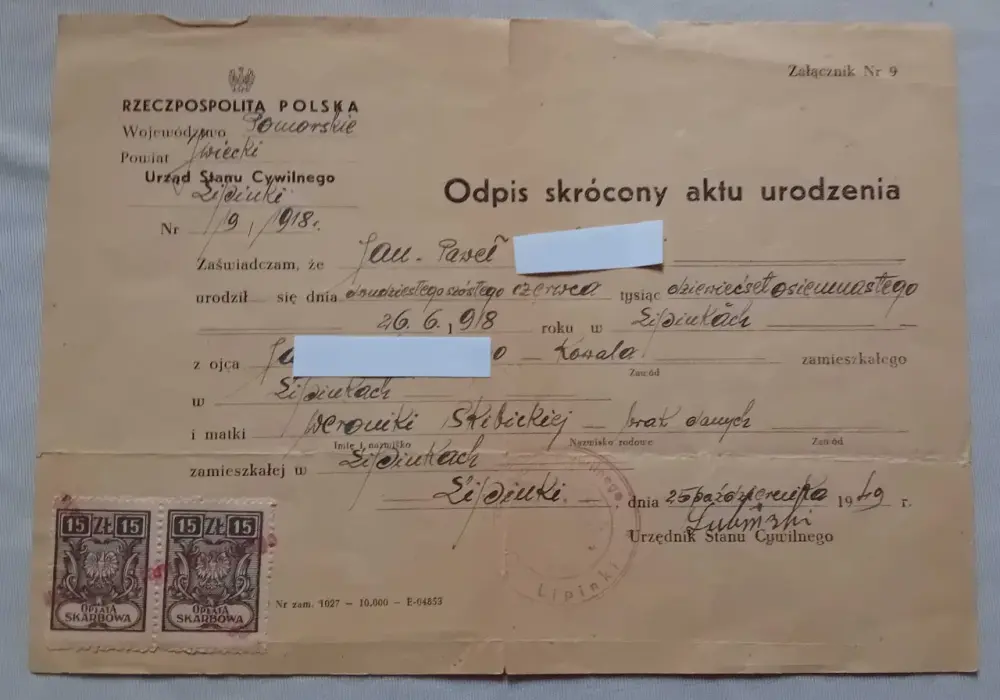 Załącznik Nr 9
RZECZPOSPOLITA POLSKA
Województwo Pomorskie
Powiat Świecki
Urząd Stanu Cywilnego
Lipinki
Nr 19/1918r.
Odpis skrócony aktu urodzenia
Zaświadczam, że Jan - Paweł
urodził się dnia dwudziestego szóstego czerwca tysiąc dziewięćset osiemnastego
26.6.1918 roku w Lipinkach
z ojca Kowala zamieszkałego
Zawód
w Lipinkach
i matki Weroniki Skibickiej brak danych
Imię i nazwisko Nazwisko rodowe Zawód
zamieszkałej w Lipinkach
Lipinki dnia 25 października 1949 r.
Urzędnik Stanu Cywilnego
Lipinki
15 ZŁ 15 15 ZŁ 15
OPŁATA OPŁATA
SKARBOWA SKARBOWA
Nr zam. 1027 — 10.000 — E-04853